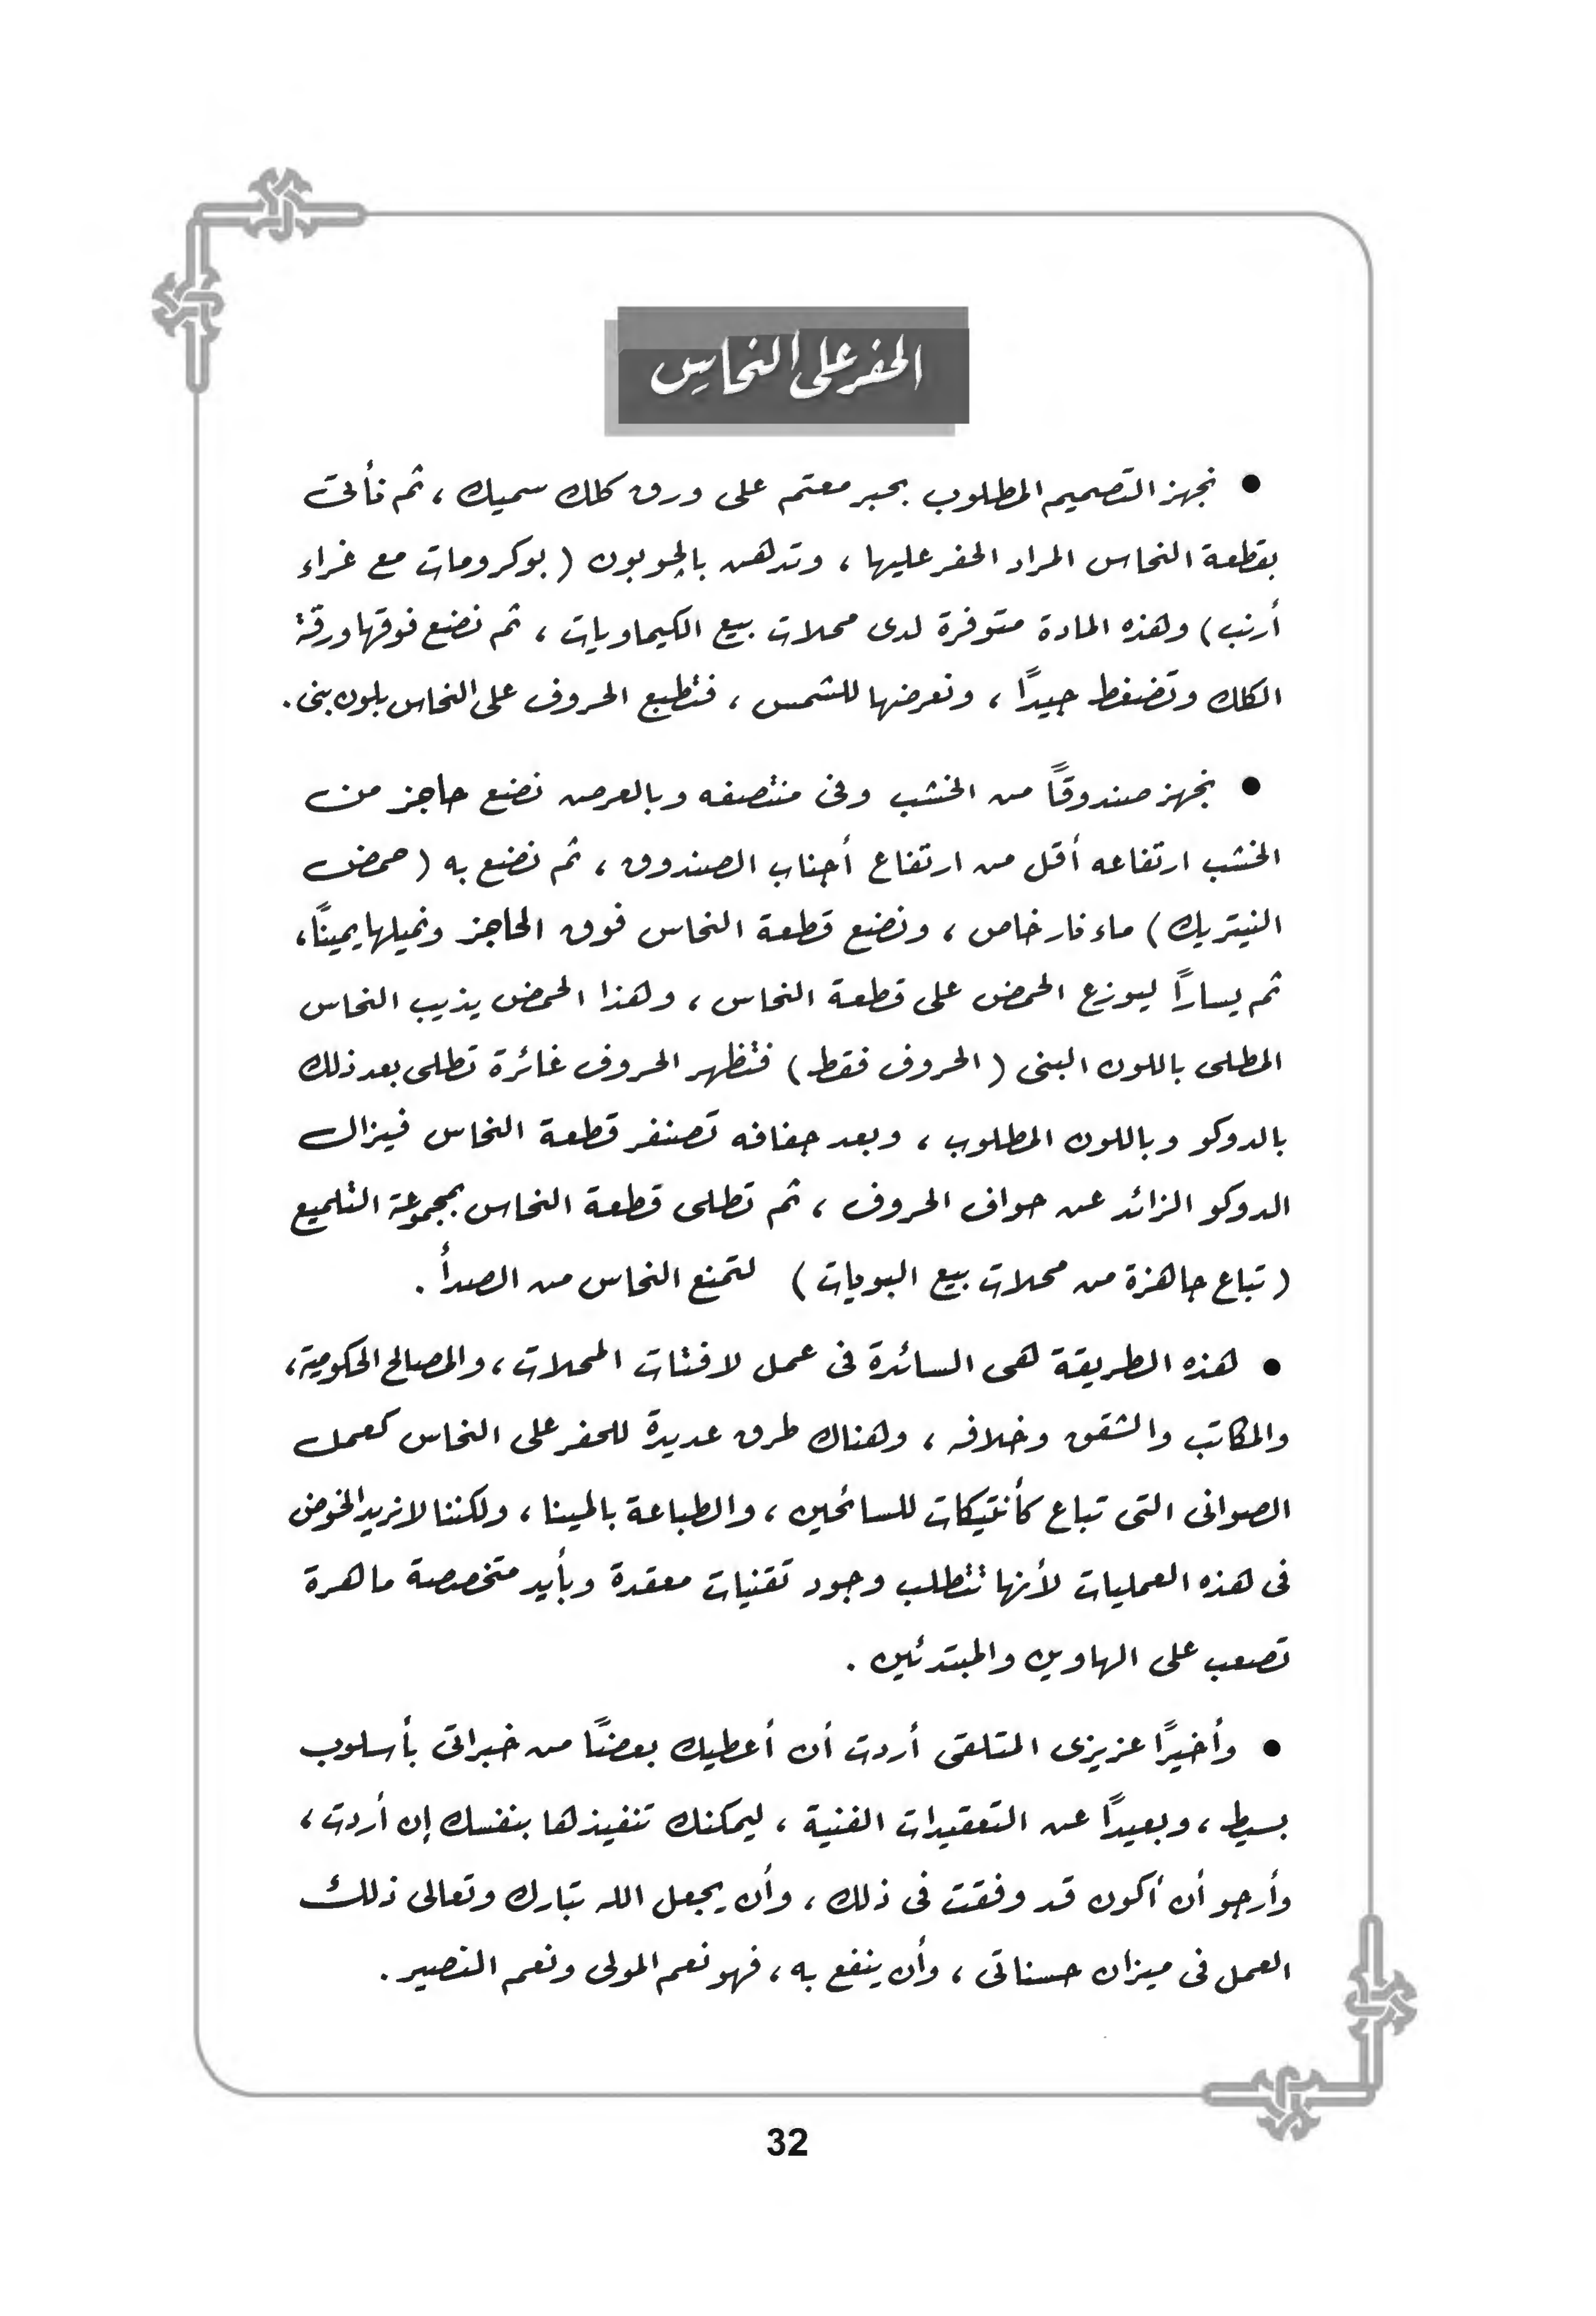 الحفر على النحاس
● نجهز التصميم المطلوب بحبر معتم على ورق كلك سميك ، ثم نأتى
بقطعة النحاس المراد الحفر عليها ، وتدهن بالچوبون ( بوكرومات مع غراء
أرنب ) وهذه المادة متوفرة لدى محلات بيع الكيماويات ، ثم نضع فوقها ورقة
الكلك وتضغط جيداً ، ونعرضها للشمس ، فتطبع الحروف على النحاس بلون بنى .
● نجهز صندوقاً من الخشب وفى منتصفه وبالعرض نضع حاجز من
الخشب ارتفاعه أقل من ارتفاع أجناب الصندوق ، ثم نضع به ( حمض
النيتريك ) ماء نار خاص ، ونضع قطعة النحاس فوق الحاجز ونميلها يميناً ،
ثم يساراً ليوزع الحمض على قطعة النحاس ، وهذا الحمض يذيب النحاس
المطلى باللون البنى ( الحروف فقط ) فتظهر الحروف غائرة تطلى بعد ذلك
بالدوكو وباللون المطلوب ، وبعد جفافه تصنفر قطعة النحاس فيزال
الدوكو الزائد عن حواف الحروف ، ثم تطلى قطعة النحاس بمجموعة التلميع
( تباع جاهزة من محلات بيع البويات ) لتمنع النحاس من الصدأ .
● هذه الطريقة هى السائدة فى عمل لافتات المحلات ، والمصالح الحكومية ،
والمكاتب والشقق وخلافه ، وهناك طرق عديدة للحفر على النحاس كعمل
الصوانى التى تباع كأنتيكات للسائحين ، والطباعة بالمينا ، ولكننا لا نريد الخوض
فى هذه العمليات لأنها تتطلب وجود تقنيات معقدة وبأيد متخصصة ماهرة
تصعب على الهاوين والمبتدئين .
● وأخيراً عزيزى المتلقى أردت أن أعطيك بعضاً من خبراتى بأسلوب
بسيط ، وبعيداً عن التعقيدات الفنية ، ليمكنك تنفيذها بنفسك إن أردت ،
وأرجو أن أكون قد وفقت فى ذلك ، وأن يجعل الله تبارك وتعالى ذلك
العمل فى ميزان حسناتى ، وأن ينفع به ، فهو نعم المولى ونعم النصير .
32